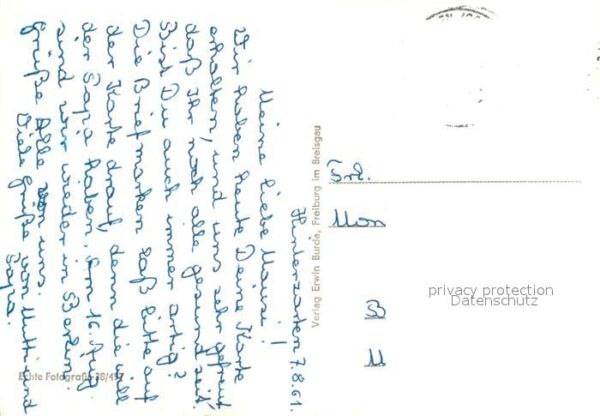 Hinterzarten 7.8.61.
Meine liebe Mausi!
Wir haben heute Deine Karte
erhalten, und uns sehr gefreut,
daß Ihr noch alle gesund seit.
Bist Du auch immer artig?
Die Briefmarken laß bitte auf
der Karte drauf, denn die will
der Papa haben. Am 16. Aug.
sind wir wieder in Berlin.
Grüße Alle von uns.
Viele Grüße von Mutti und
Papa.
Verlag Erwin Burda, Freiburg im Breisgau
Frl.
Mon
B
Echte Fotografie 38/
privacy protection
Datenschutz